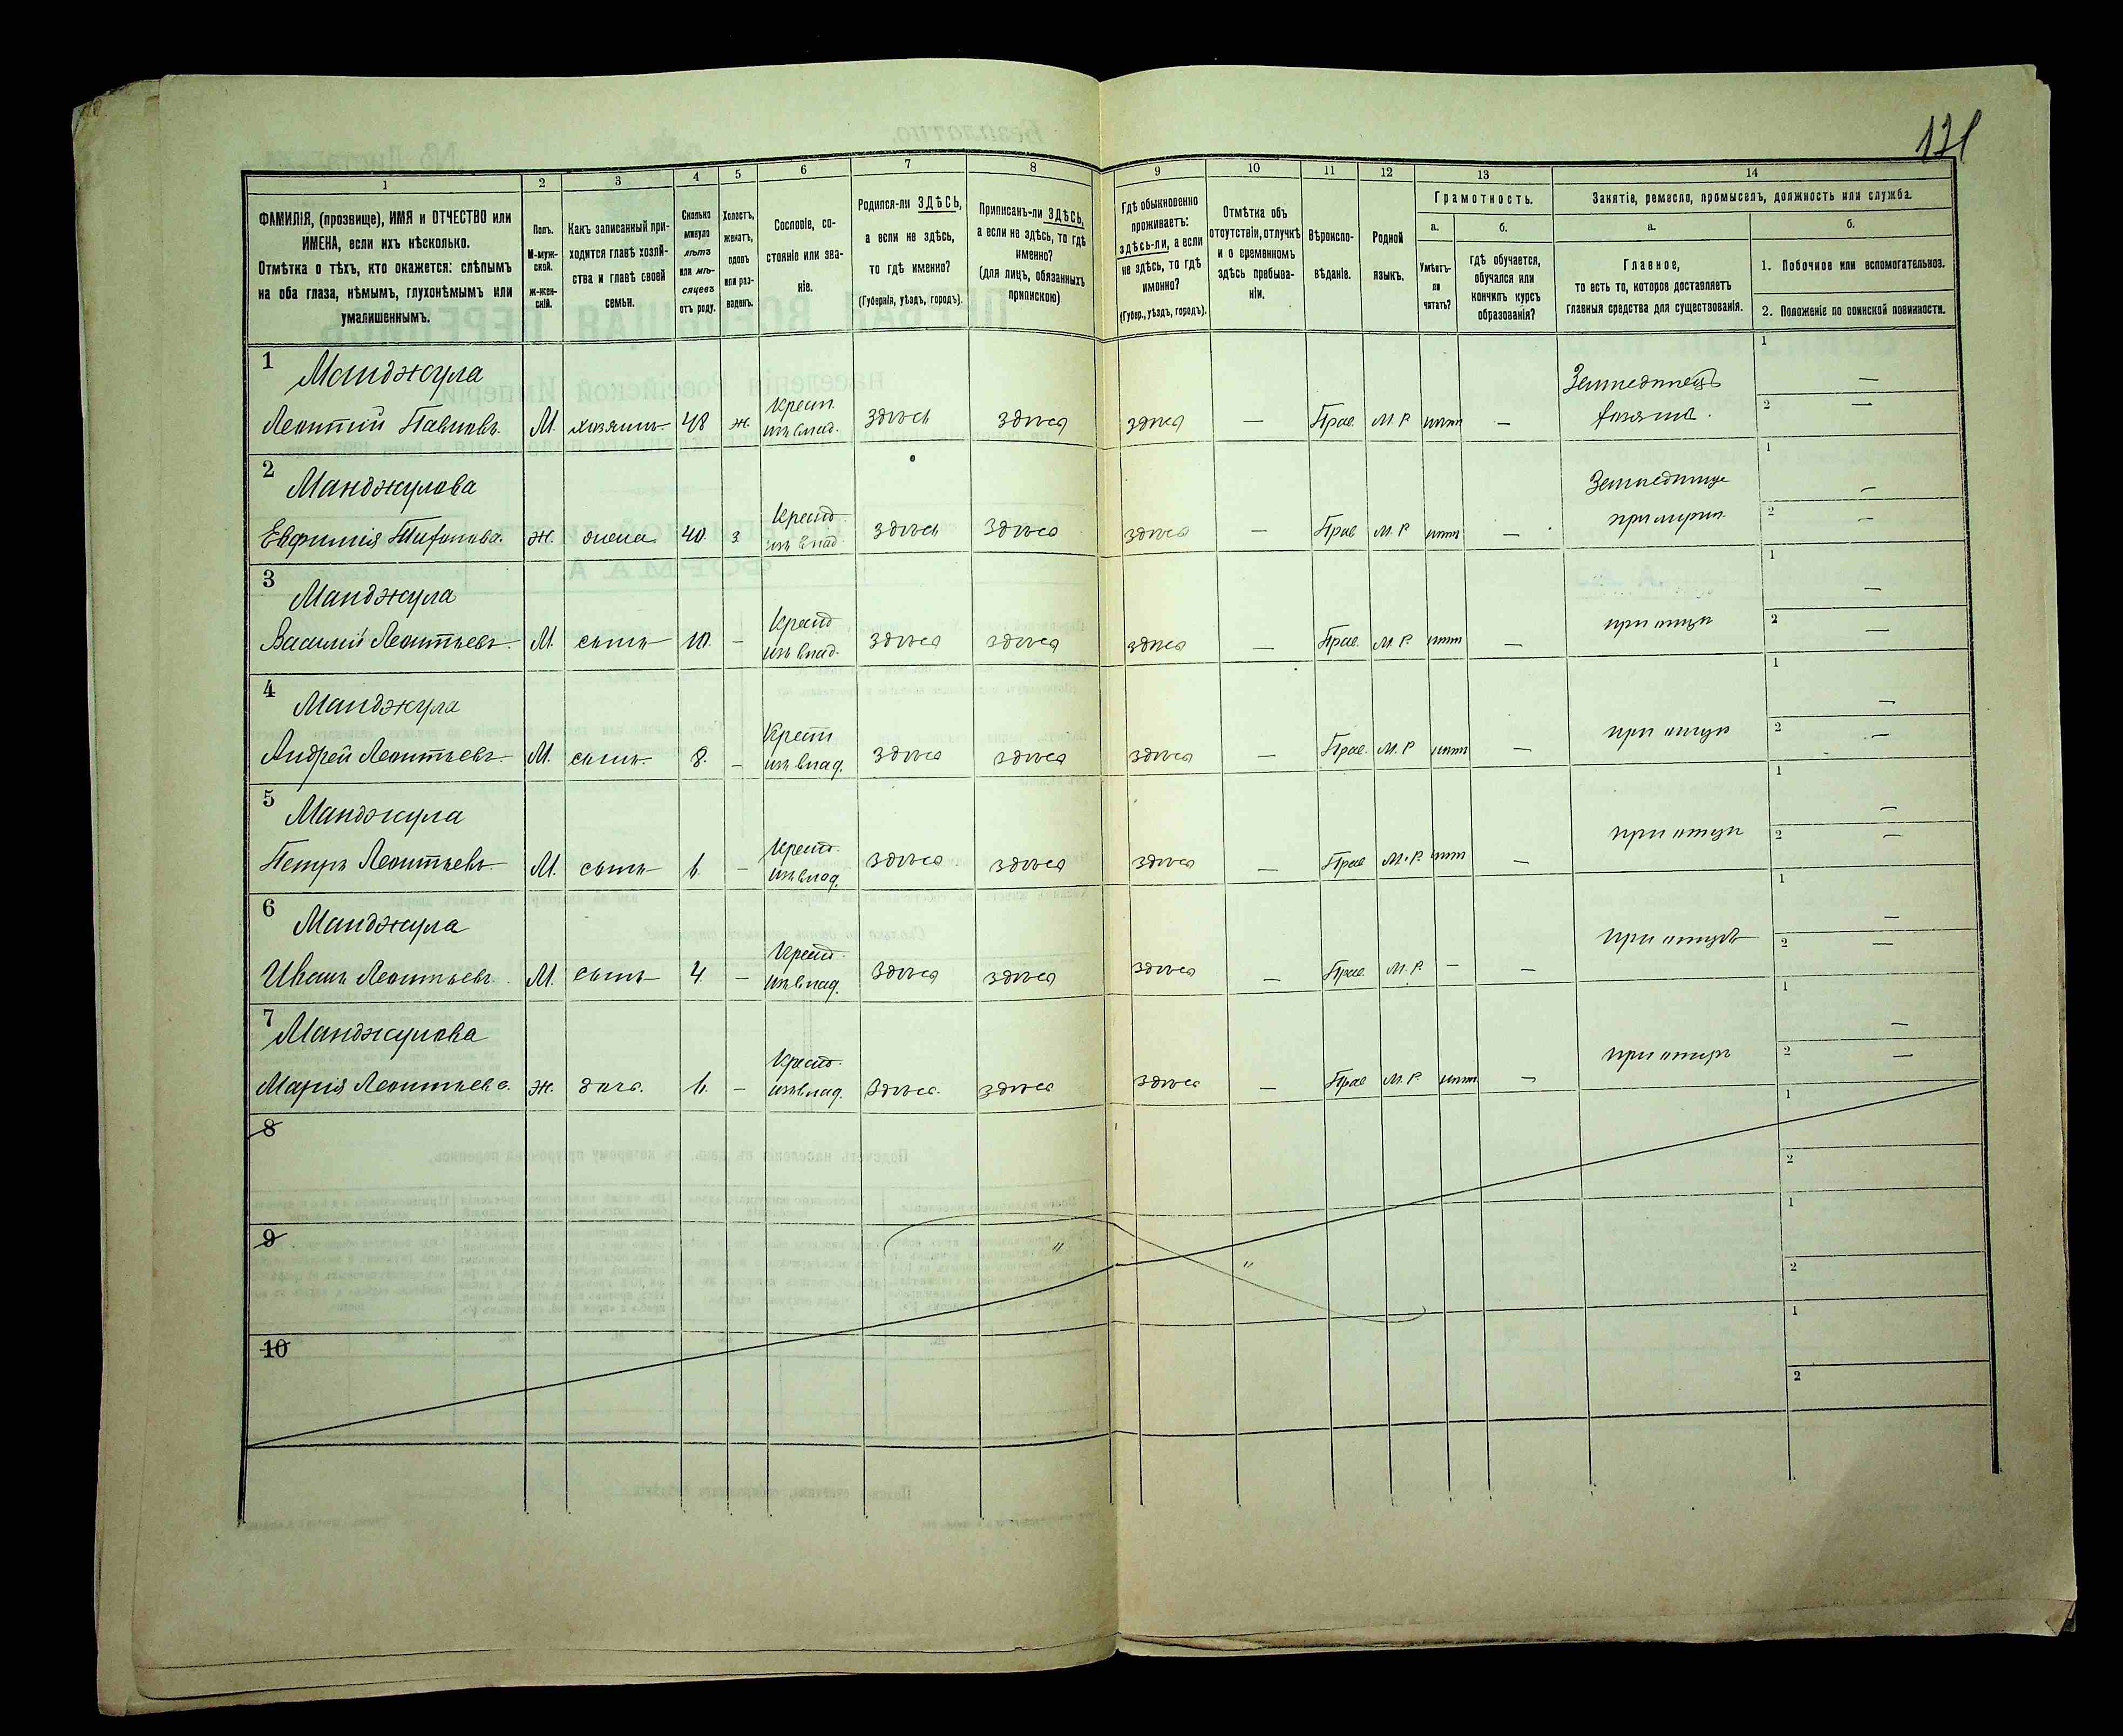 171
1
2
3
4
5
6
7
8
9
10
11
12
13
14
ФАМИЛІЯ, (прозвище), ИМЯ и ОТЧЕСТВО или
ИМЕНА, если ихъ нѣсколько.
Отмѣтка о тѣхъ, кто окажется: слѣпымъ
на оба глаза, нѣмымъ, глухонѣмымъ или
умалишеннымъ.
Полъ.
М-муж-
ской.
Ж-жен-
скій.
Какъ записанный при-
ходится главѣ хозяй-
ства и главѣ своей
семьи.
Сколько
минуло
лѣтъ
или мѣ-
сяцевъ
отъ роду.
Холостъ,
женатъ,
вдовъ
или раз-
веденъ.
Сословіе, со-
стояніе или зва-
ніе.
Родился-ли ЗДѢСЬ,
а если не здѣсь,
то гдѣ именно?
(Губернія, уѣздъ, городъ).
Приписанъ-ли ЗДѢСЬ,
а если не здѣсь, то гдѣ
именно?
(для лицъ, обязанныхъ
припискою)
Гдѣ обыкновенно
проживаетъ:
здѣсь-ли, а если
не здѣсь, то гдѣ
именно?
(Губер., уѣздъ, городъ).
Отмѣтка объ
отсутствіи, отлучкѣ
и о временномъ
здѣсь пребыва-
ніи.
Вѣроиспо-
вѣданіе.
Родной
языкъ.
Грамотность.
а.
Умѣетъ-
ли
читать?
б.
гдѣ обучается,
обучался или
кончилъ курсъ
образованія?
Занятіе, ремесло, промыселъ, должность или служба.
а.
Главное,
то есть то, которое доставляетъ
главныя средства для существованія.
б.
1. Побочное или вспомогательное.
2. Положеніе по воинской повинности.
1
Манджула
Леонтий Павловъ М. хозяинъ 48 ж. Крест. изъ влад. здѣсь здѣсь здѣсь — Прав. М.Р. нѣтъ —
Земледѣлецъ
1 —
2 —
2
Манджулова
Евфимія ж. жена 40. з. Крест. изъ влад. здѣсь здѣсь здѣсь — Прав. М.Р. нѣтъ —
1 —
2 —
3
Манджула
Василий Леонтьевъ М. сынъ 10. — Крест. изъ влад. здѣсь здѣсь здѣсь — Прав. М.Р. нѣтъ —
при отцѣ
1 —
2 —
4
Манджула
Андрей Леонтьевъ М. сынъ 8. — Крест. изъ влад. здѣсь здѣсь здѣсь — Прав. М.Р. нѣтъ —
при отцѣ
1 —
2 —
5
Манджула
Петръ Леонтьевъ М. сынъ — Крест. изъ влад. здѣсь здѣсь здѣсь — Прав. М.Р. нѣтъ —
при отцѣ
1 —
2 —
6
Манджула
Иванъ Леонтьевъ М. сынъ 4. — Крест. изъ влад. здѣсь здѣсь здѣсь — Прав. М.Р. — —
при отцѣ
1 —
2 —
7
Манджулова
Марія Леонтьева ж. дочь — Крест. изъ влад. здѣсь здѣсь здѣсь — Прав. М.Р. нѣтъ —
при отцѣ
1 —
2 —
8
1
2
9
1
2
10
1
2